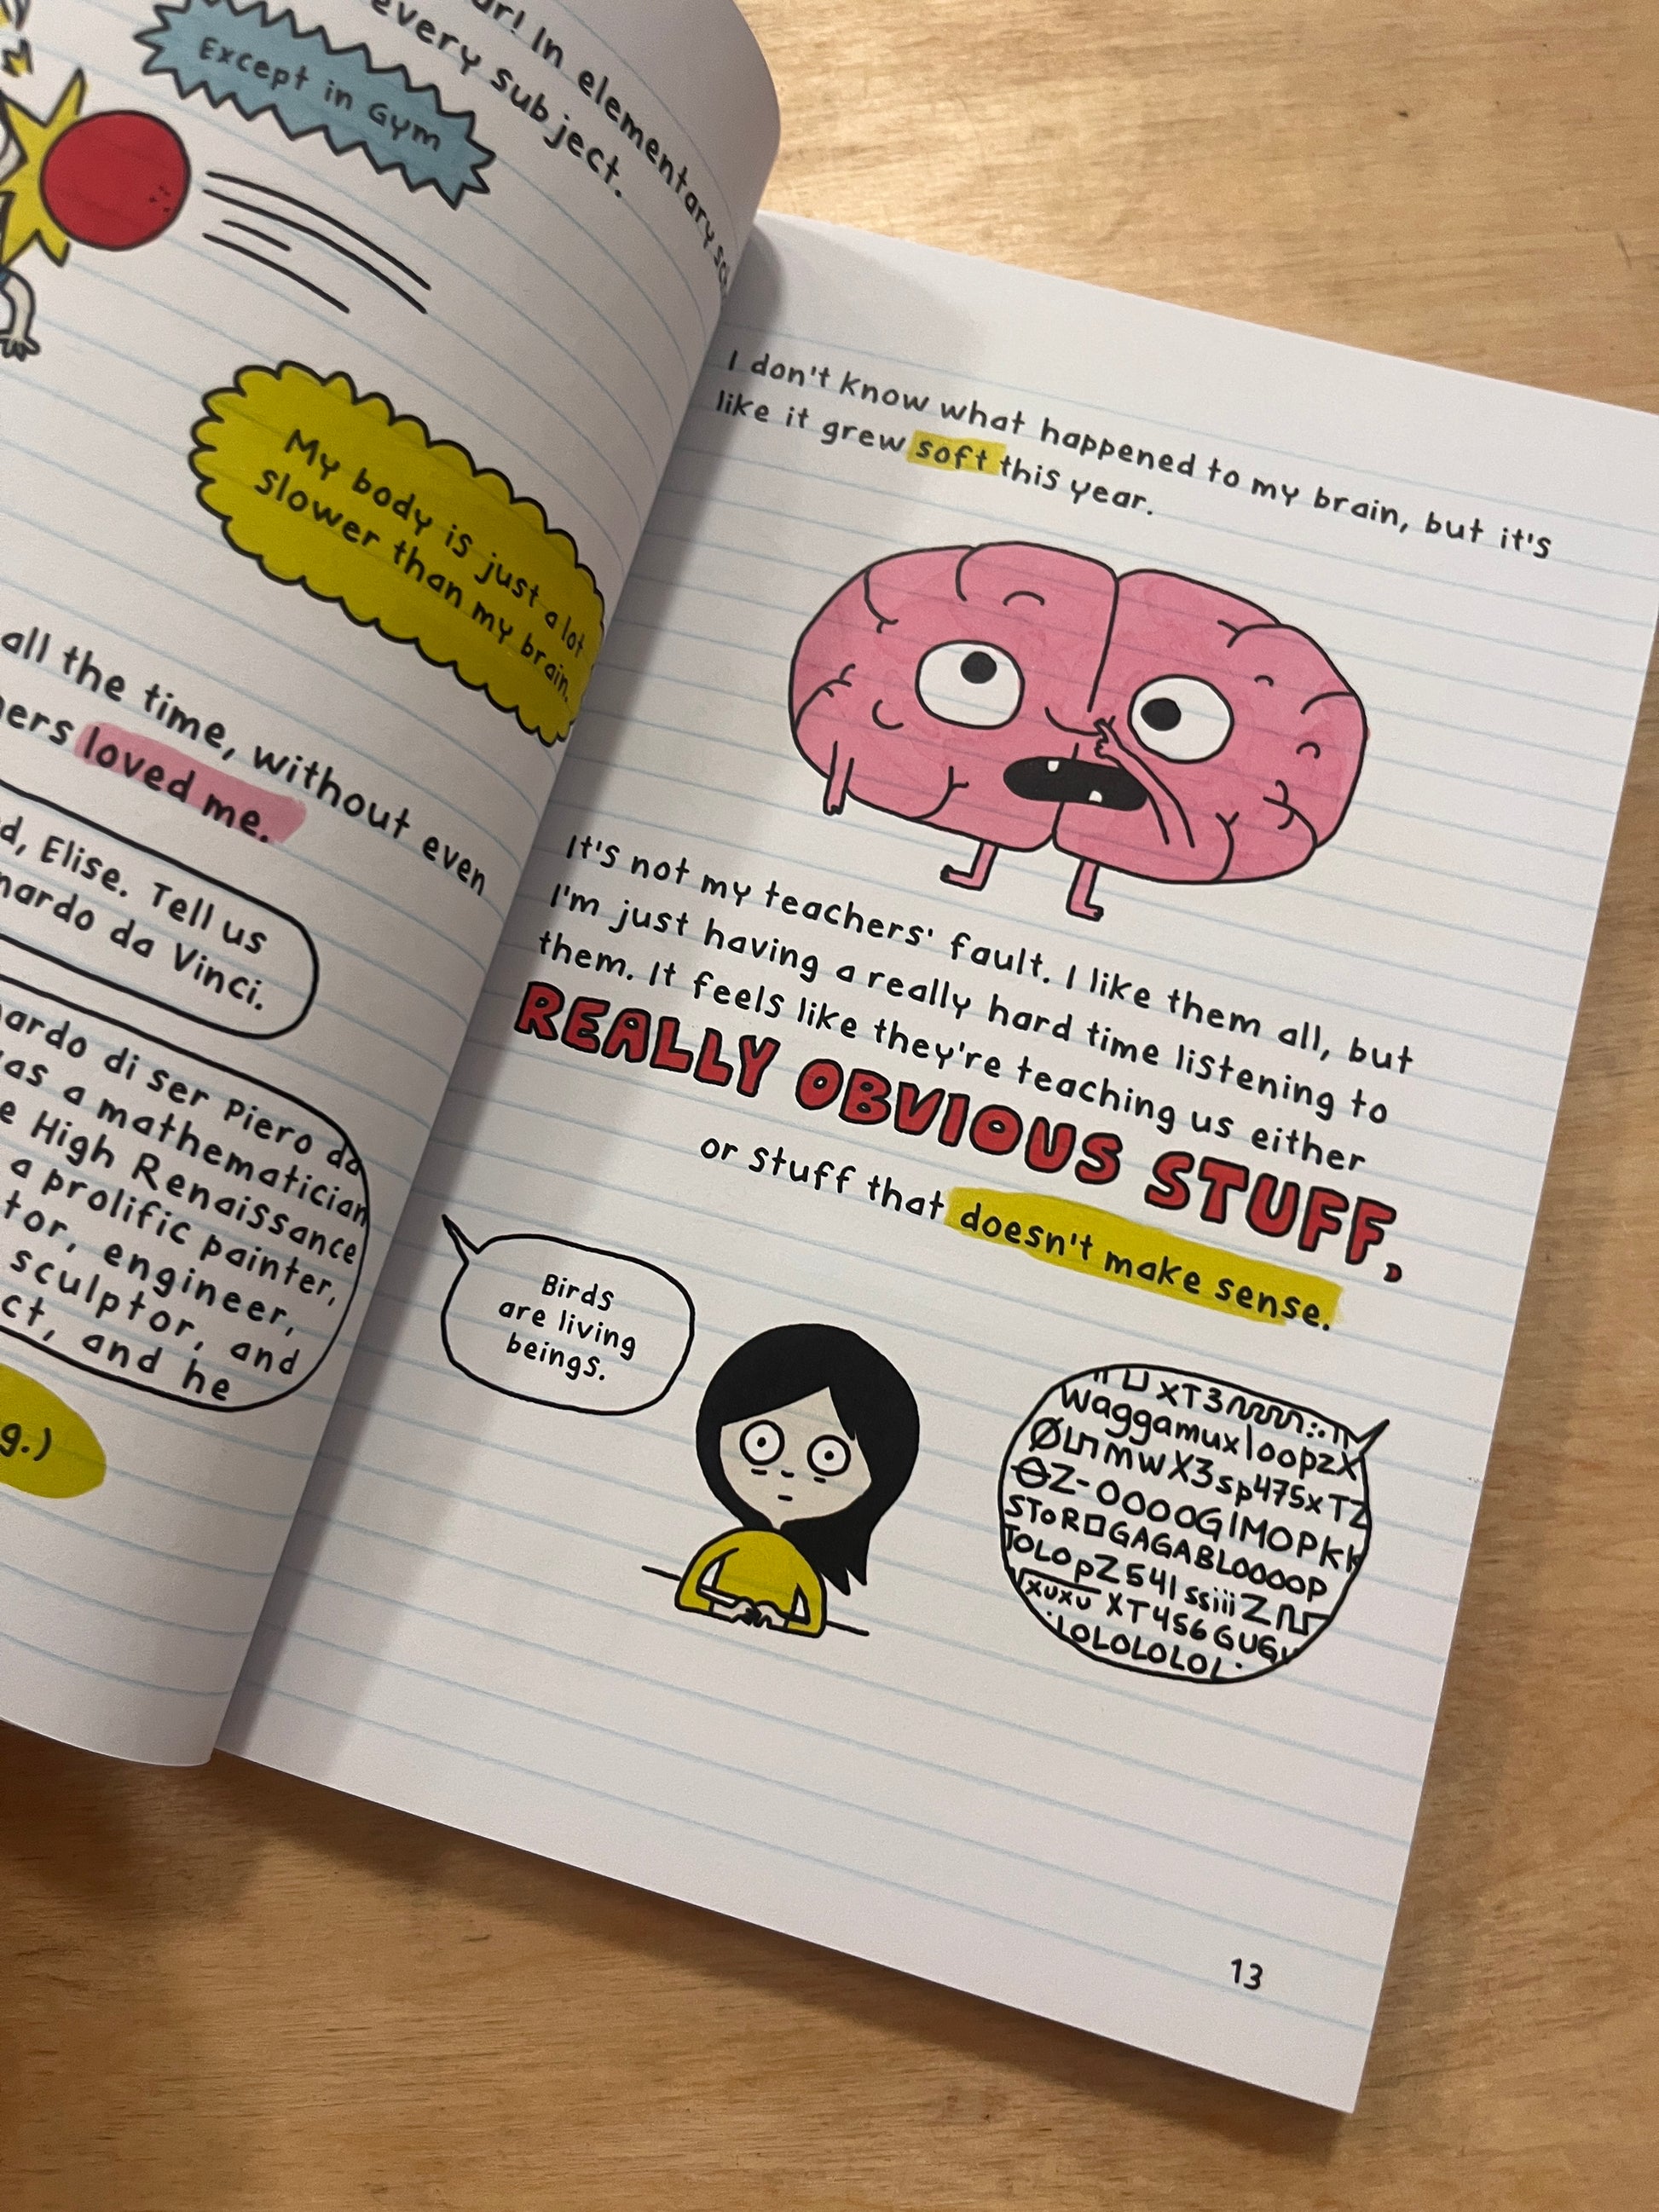 In elementary
every subject.
Except in Gym
My body is just a lot
slower than my brain.
all the time, without even
loved me.
Elise. Tell us
da Vinci.
di ser Piero da
was a mathematician
High Renaissance
a prolific painter,
engineer,
sculptor, and
and he
I don't know what happened to my brain, but it's
like it grew soft this year.
It's not my teachers' fault. I like them all, but
I'm just having a really hard time listening to
them. It feels like they're teaching us either
REALLY OBVIOUS STUFF,
or stuff that doesn't make sense.
Birds
are living
beings.
xT3
waggamuxloopzX
mwX3sp475xTZ
Z-OOOOGIMOPKK
SToR□GAGABLOOOOP
TOLOpZ541ssiiiZ
xuxu XT456GUGu
LOLOLOLOL
13